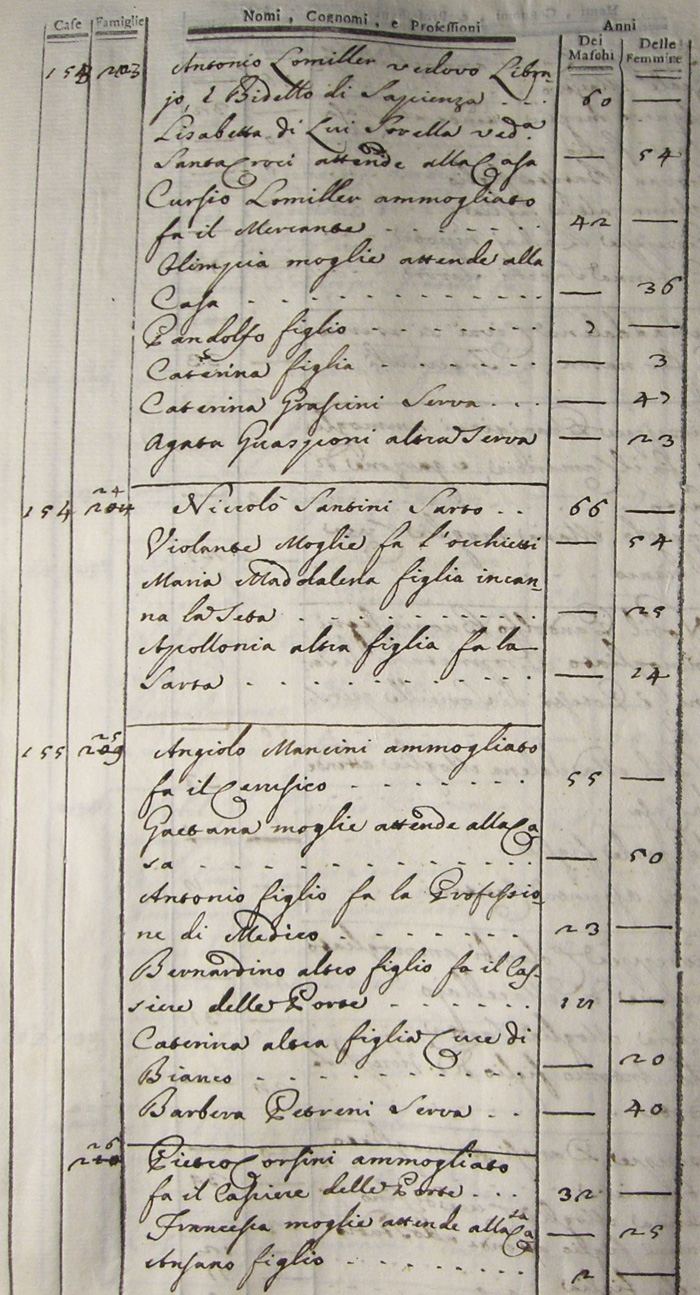 Case Famiglie Nomi, Cognomi, e Professioni Anni
Dei Maschi Delle Femmine
153 203 Antonio Lomiller vedovo Libra
jo, è Bidello di Sapienza . . . 60 —
Lisabetta di Lui Sorella ved.a
Santa Croci attende alla Casa — 54
Cursio Lomiller ammogliato
fa il Mercante - - - - - - 42 —
Olimpia moglie attende alla
Casa - - - - - - - — 36
Pandolfo figlio - - - - - - —
Caterina figlia - - - - - — 3
Caterina Grascini Serva . . . —
Agata Guaspconi altra Serva — 23
154 24 204 Niccolò Santini Sarto . . 66 —
Violante Moglie fa l'occhietti — 54
Maria Maddalena figlia incan
na la Seta . . . . . . . — 25
Apollonia altra figlia fa la
Sarta - - - - - - - — 14
155 25 Angiolo Mancini ammogliato
fa il Cerusico - - - - - - 55 —
Gaetana moglie attende alla Ca
sa - - - - - - - - — 50
Antonio figlio fa la Professio
ne di Medico - - - - - - 23 —
Bernardino altro figlio fa il Cas-
siere delle Porte - - - - - —
Caterina altra figlia Cuce di
Bianco - - - - - - - - — 20
Barbera Petreni Serva . . — 40
26 Pietro Corsini ammogliato
fa il Cassiere delle Porte . . . 32 —
Francesca moglie attende alla Ca sa — 25
Ansano figlio - - - - - - 2